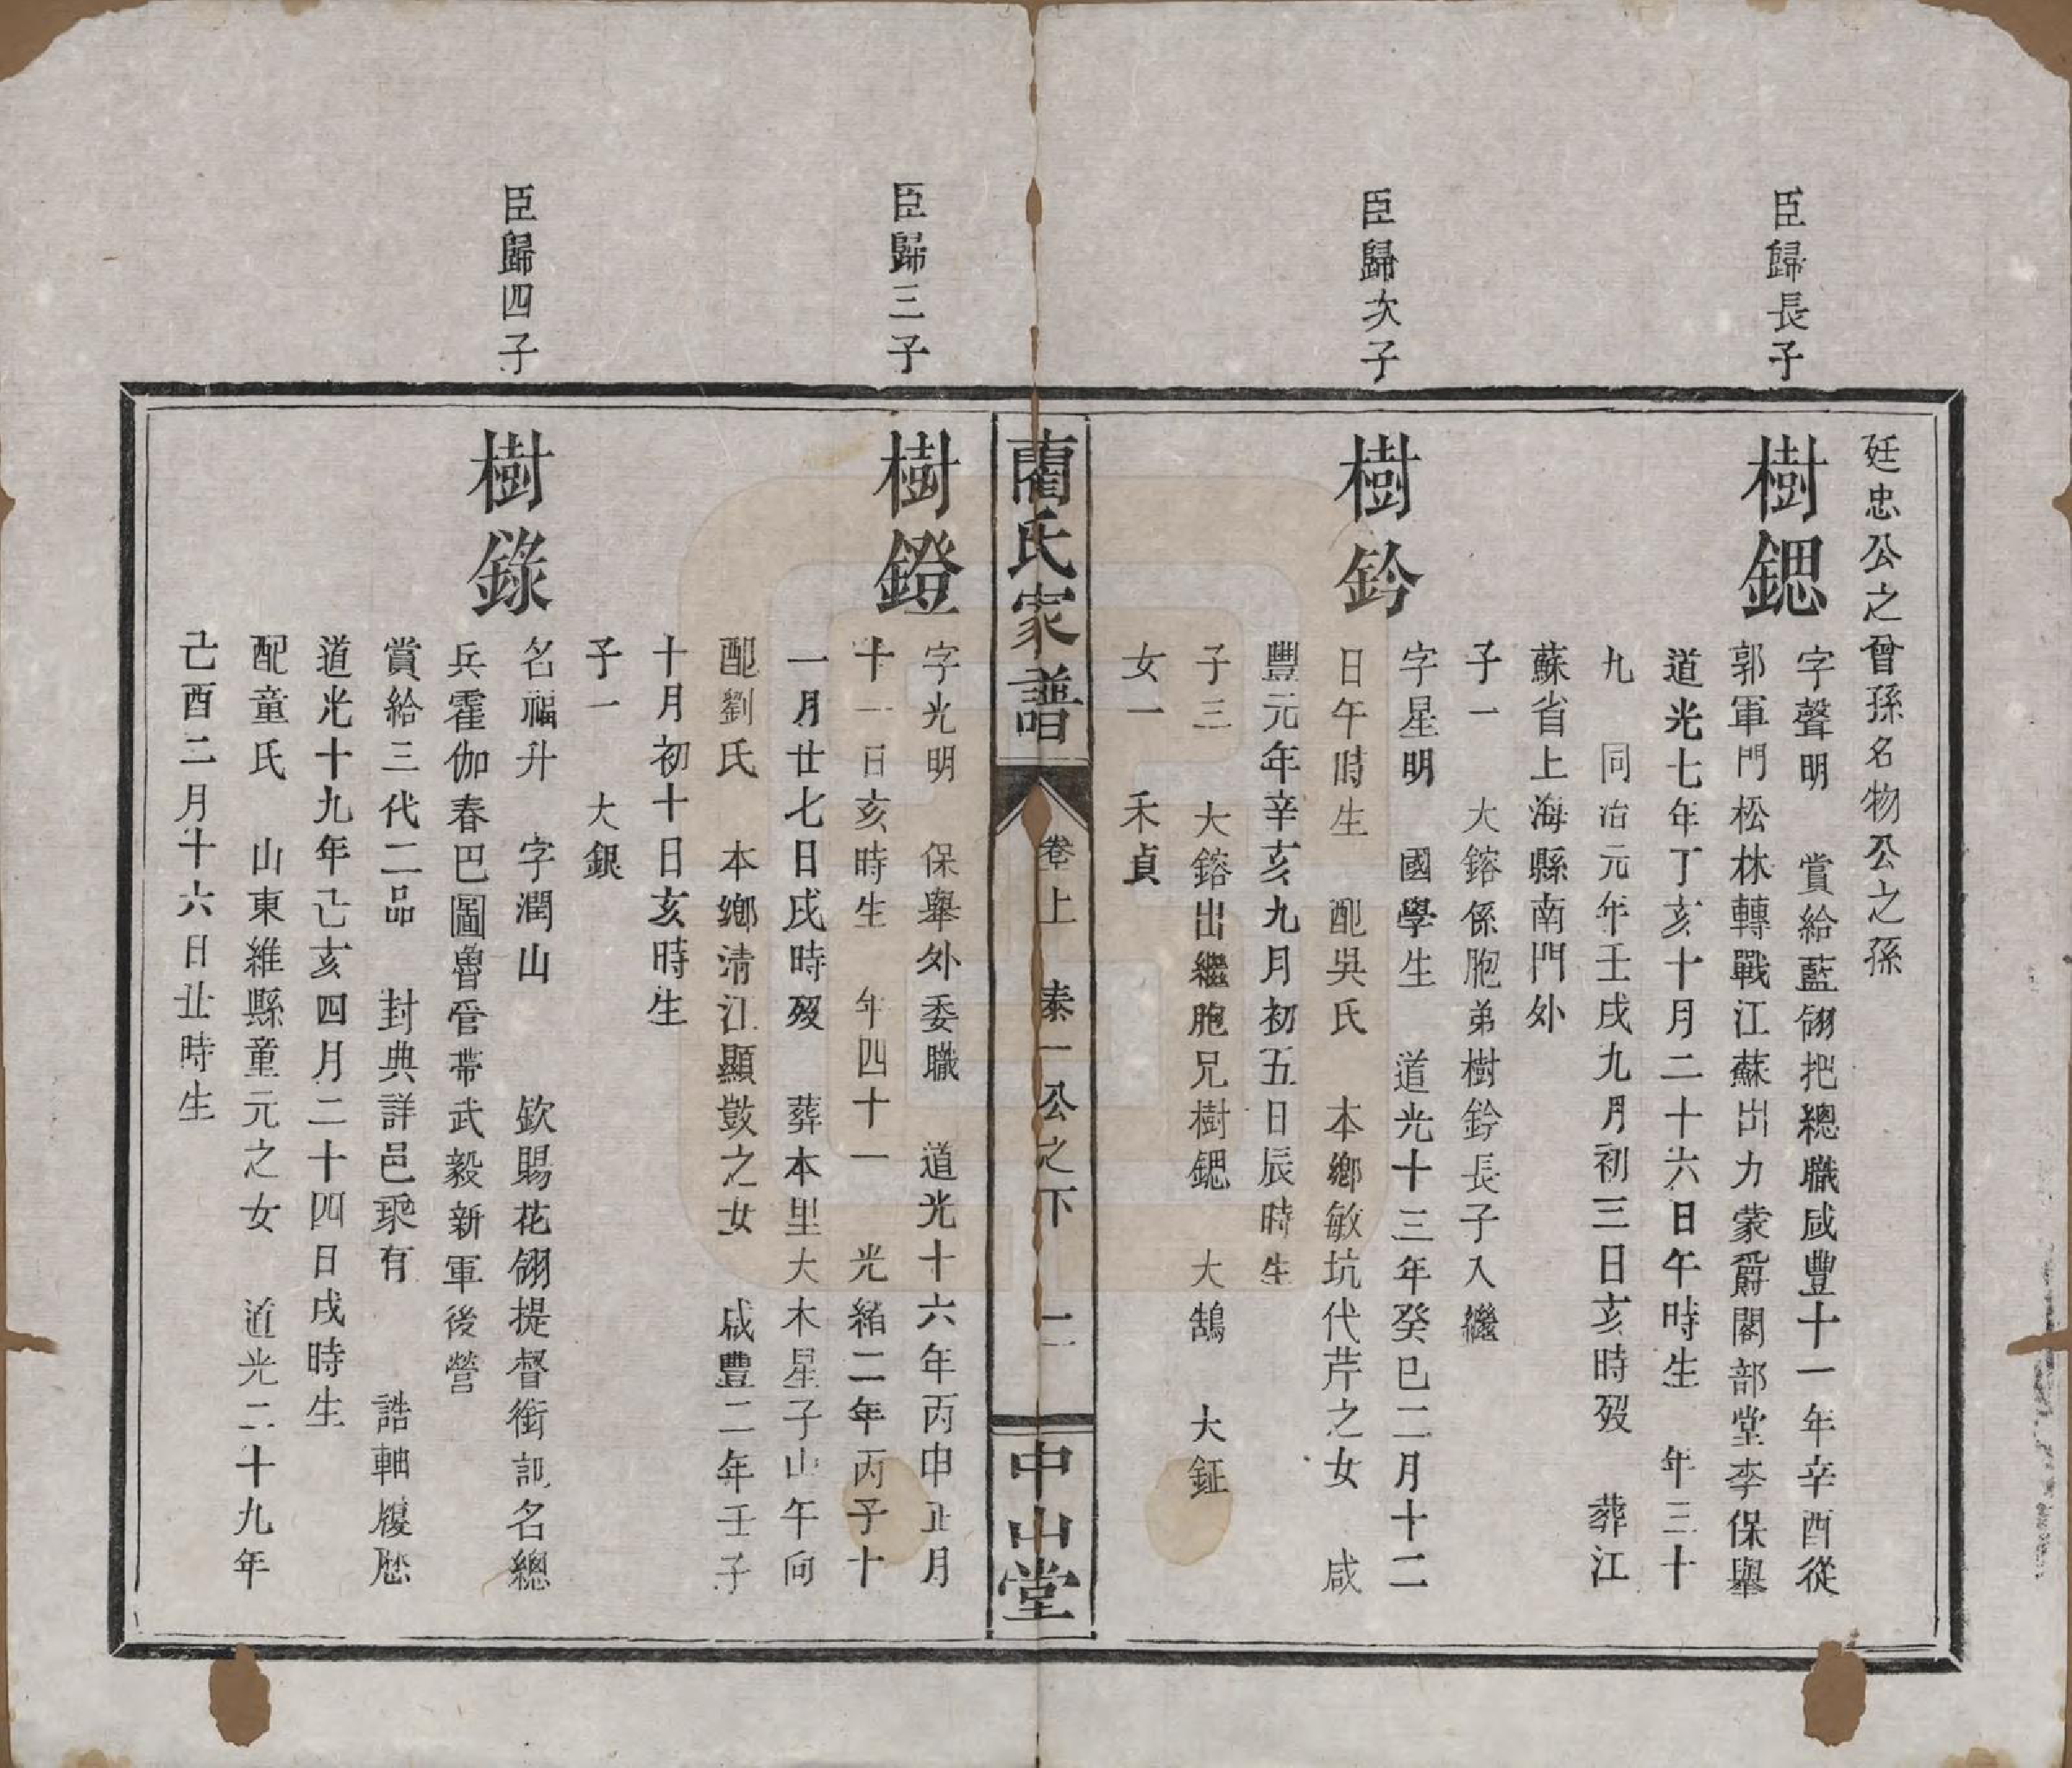 廷忠公之曾孫名物公之孫
臣歸長子
樹鍶
字聲明　賞給藍翎把總職咸豐十一年辛酉從
郭軍門松林轉戰江蘇出力蒙爵閣部堂李保舉
道光七年丁亥十月二十六日午時生　年三十
九　同治元年壬戌九月初三日亥時歿　葬江
蘇省上海縣南門外
子一　大鎔係胞弟樹鈐長子入繼
臣歸次子
樹鈐
字星明　國學生　道光十三年癸巳二月十二
日午時生　配吳氏　本鄉敏坑代芹之女　咸
豐元年辛亥九月初五日辰時生
子三　大鎔出繼胞兄樹鍶　大鵠　大鉦
女一　禾貞
藺氏家譜
卷上　泰一公之下　二
中山堂
臣歸三子
樹鐙
字光明　保舉外委職　道光十六年丙申正月
十一日亥時生　年四十一　光緒二年丙子十
一月廿七日戌時歿　葬本里大木星子山午向
配劉氏　本鄉清江顯鼓之女　咸豐二年壬子
十月初十日亥時生
子一　大銀
臣歸四子
樹錄
名福升　字潤山　欽賜花翎提督銜記名總
兵霍伽春巴圖魯管帶武毅新軍後營
賞給三代二品　封典詳邑乘有　誥軸履歷
道光十九年己亥四月二十四日戌時生
配童氏　山東維縣童元之女　道光二十九年
己酉二月十六日丑時生